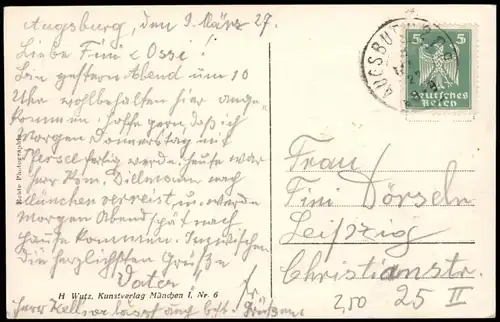 Augsburg, den 9. März 27.
Liebe Fini & Osse!
Bin gestern Abend um 10
Uhr wohlbehalten hier ange-
kommen. Hoffe gern, daß ich
Morgen Donnerstag mit
Pfersel fertig werde. Heute war
Herr Kom. Dillmann nach
München verreist, u. werde
Morgen Abend spät nach
Hause kommen. Inzwischen
die herzlichsten Grüße
Vater
Herr Keller lässt auch grüßen
Echte Photographie
H Wutz, Kunstverlag München I, Nr. 6
AUGSBURG
5 5
Deutsches
Reich
Frau
Fini Dörseln
Leipzig
Christianstr.
25 II
2,50